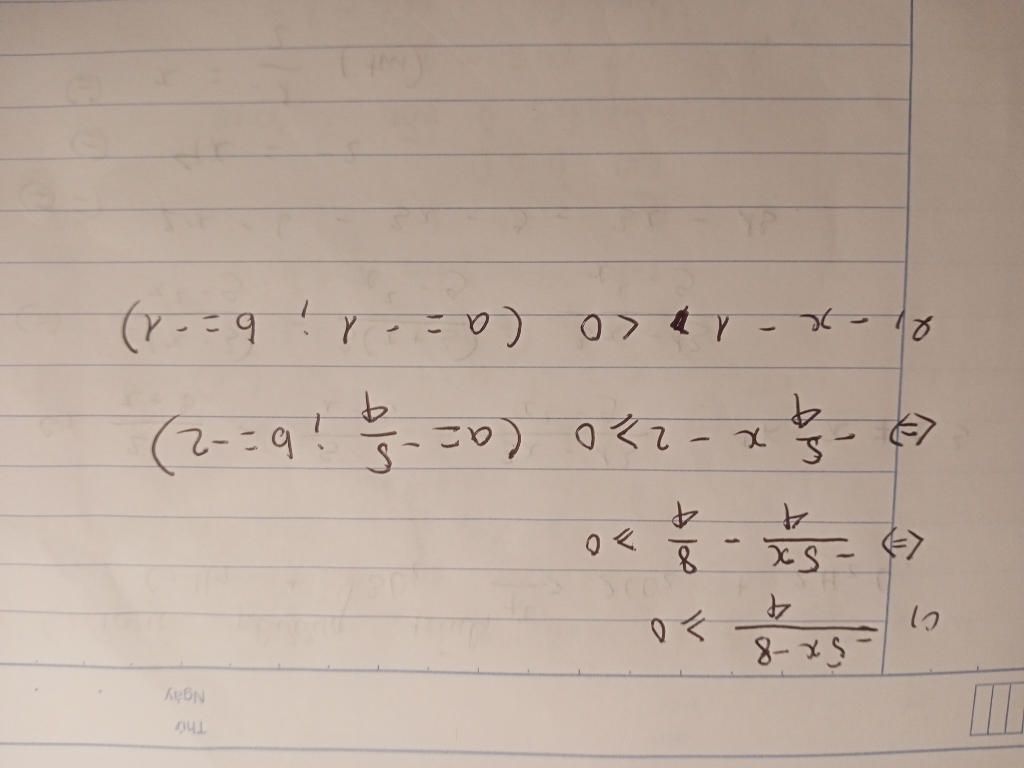 Thứ
Ngày
c) (-5x-8)/4 ⩾ 0
<=> -5x/4 - 8/4 ⩾ 0
<=> -5/4 x - 2 ⩾ 0 (a = -5/4 ; b = -2)
e, -x - 1 < 0 (a = -1 ; b = -1)